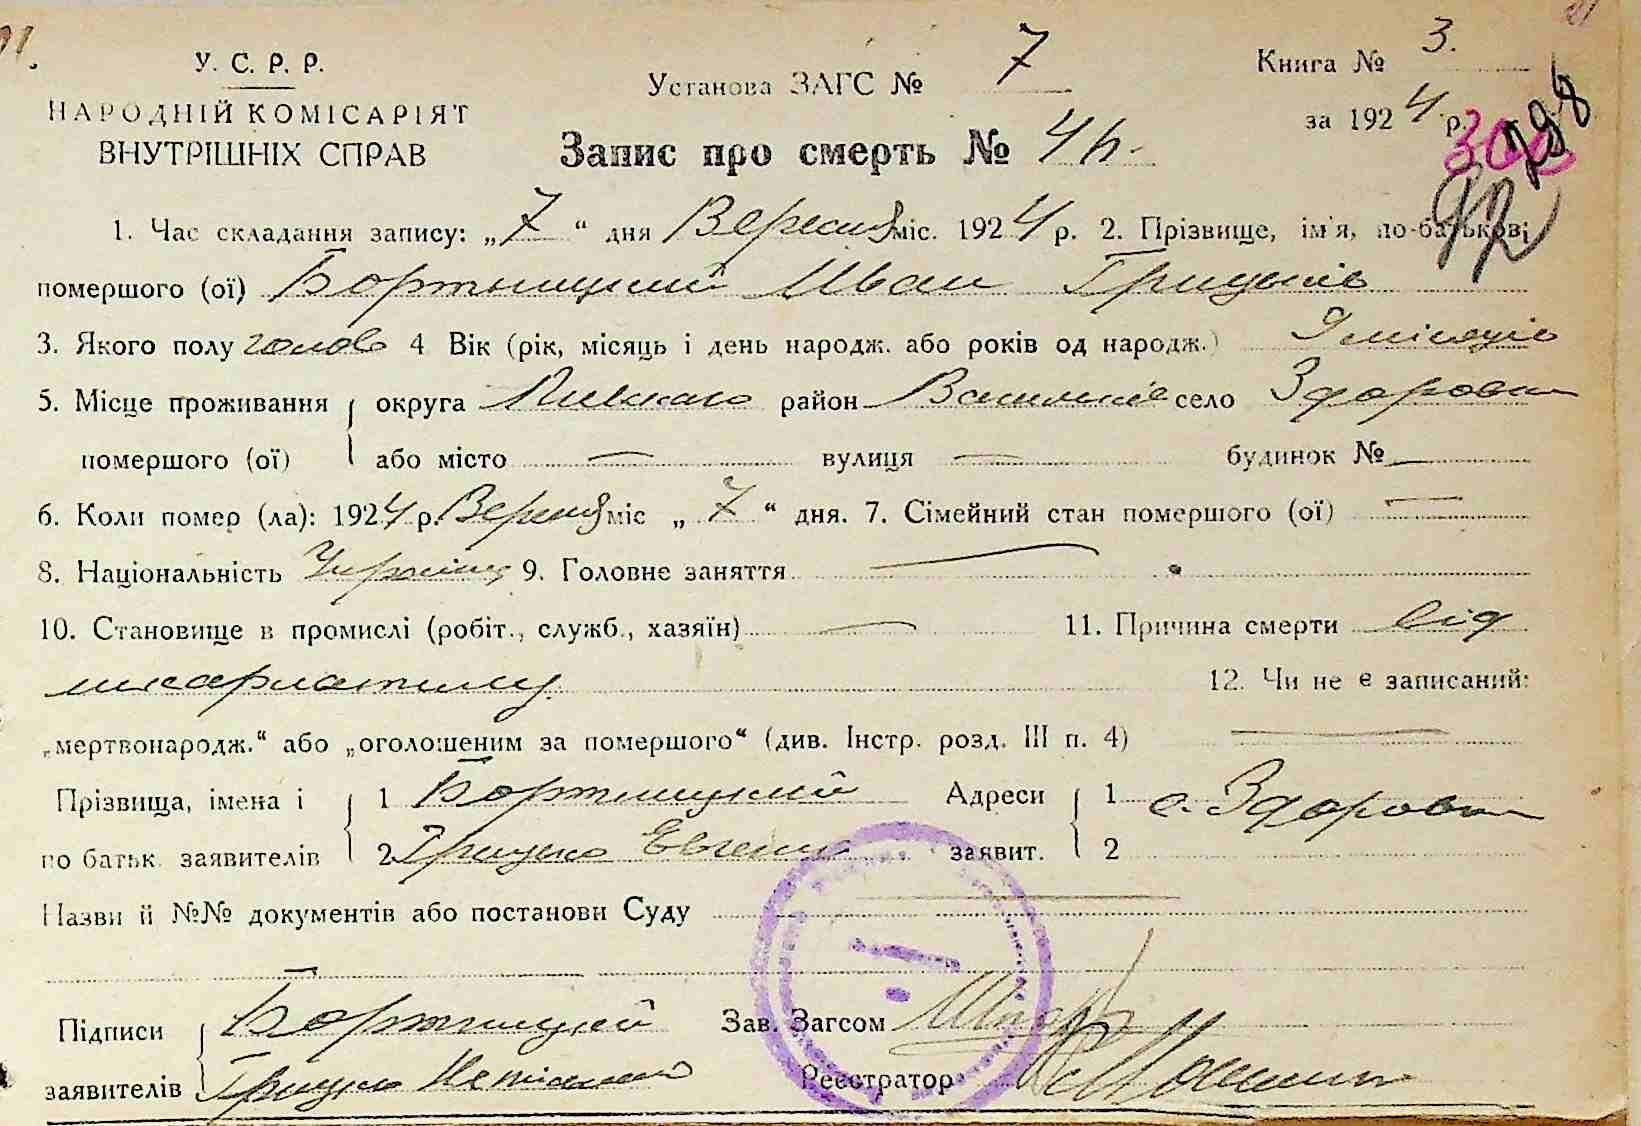 У. С. Р. Р.
НАРОДНІЙ КОМІСАРІЯТ
ВНУТРІШНІХ СПРАВ
Установа ЗАГС № 7
Книга № 3.
за 1924 р.
298
92
Запис про смерть №
1. Час складання запису: „7“ дня Вересня міс. 1924 р. 2. Прізвище, ім'я, по-батькові
помершого (ої) Бортницкий Иван Грицьків
3. Якого полу чолов 4 Вік (рік, місяць і день народж. або років од народж.) 9 місяців
5. Місце проживання округа район село Здоровка
помершого (ої) або місто — вулиця — будинок № —
6. Коли помер (ла): 1924 р. Вересня міс „7“ дня. 7. Сімейний стан помершого (ої) —
8. Національність Українец 9. Головне заняття —
10. Становище в промислі (робіт., служб., хазяїн) — 11. Причина смерти від
шкарлатини. 12. Чи не є записаний:
„мертвонародж.“ або „оголошеним за помершого“ (див. Інстр. розд. III п. 4) —
Прізвища, імена і 1 Бортницкий Адреси 1 с. Здоровка
по батьк. заявителів 2 Грицько заявит. 2
Назви й №№ документів або постанови Суду —
Підписи Бортницкий Зав. Загсом
заявителів Грицко Реєстратор